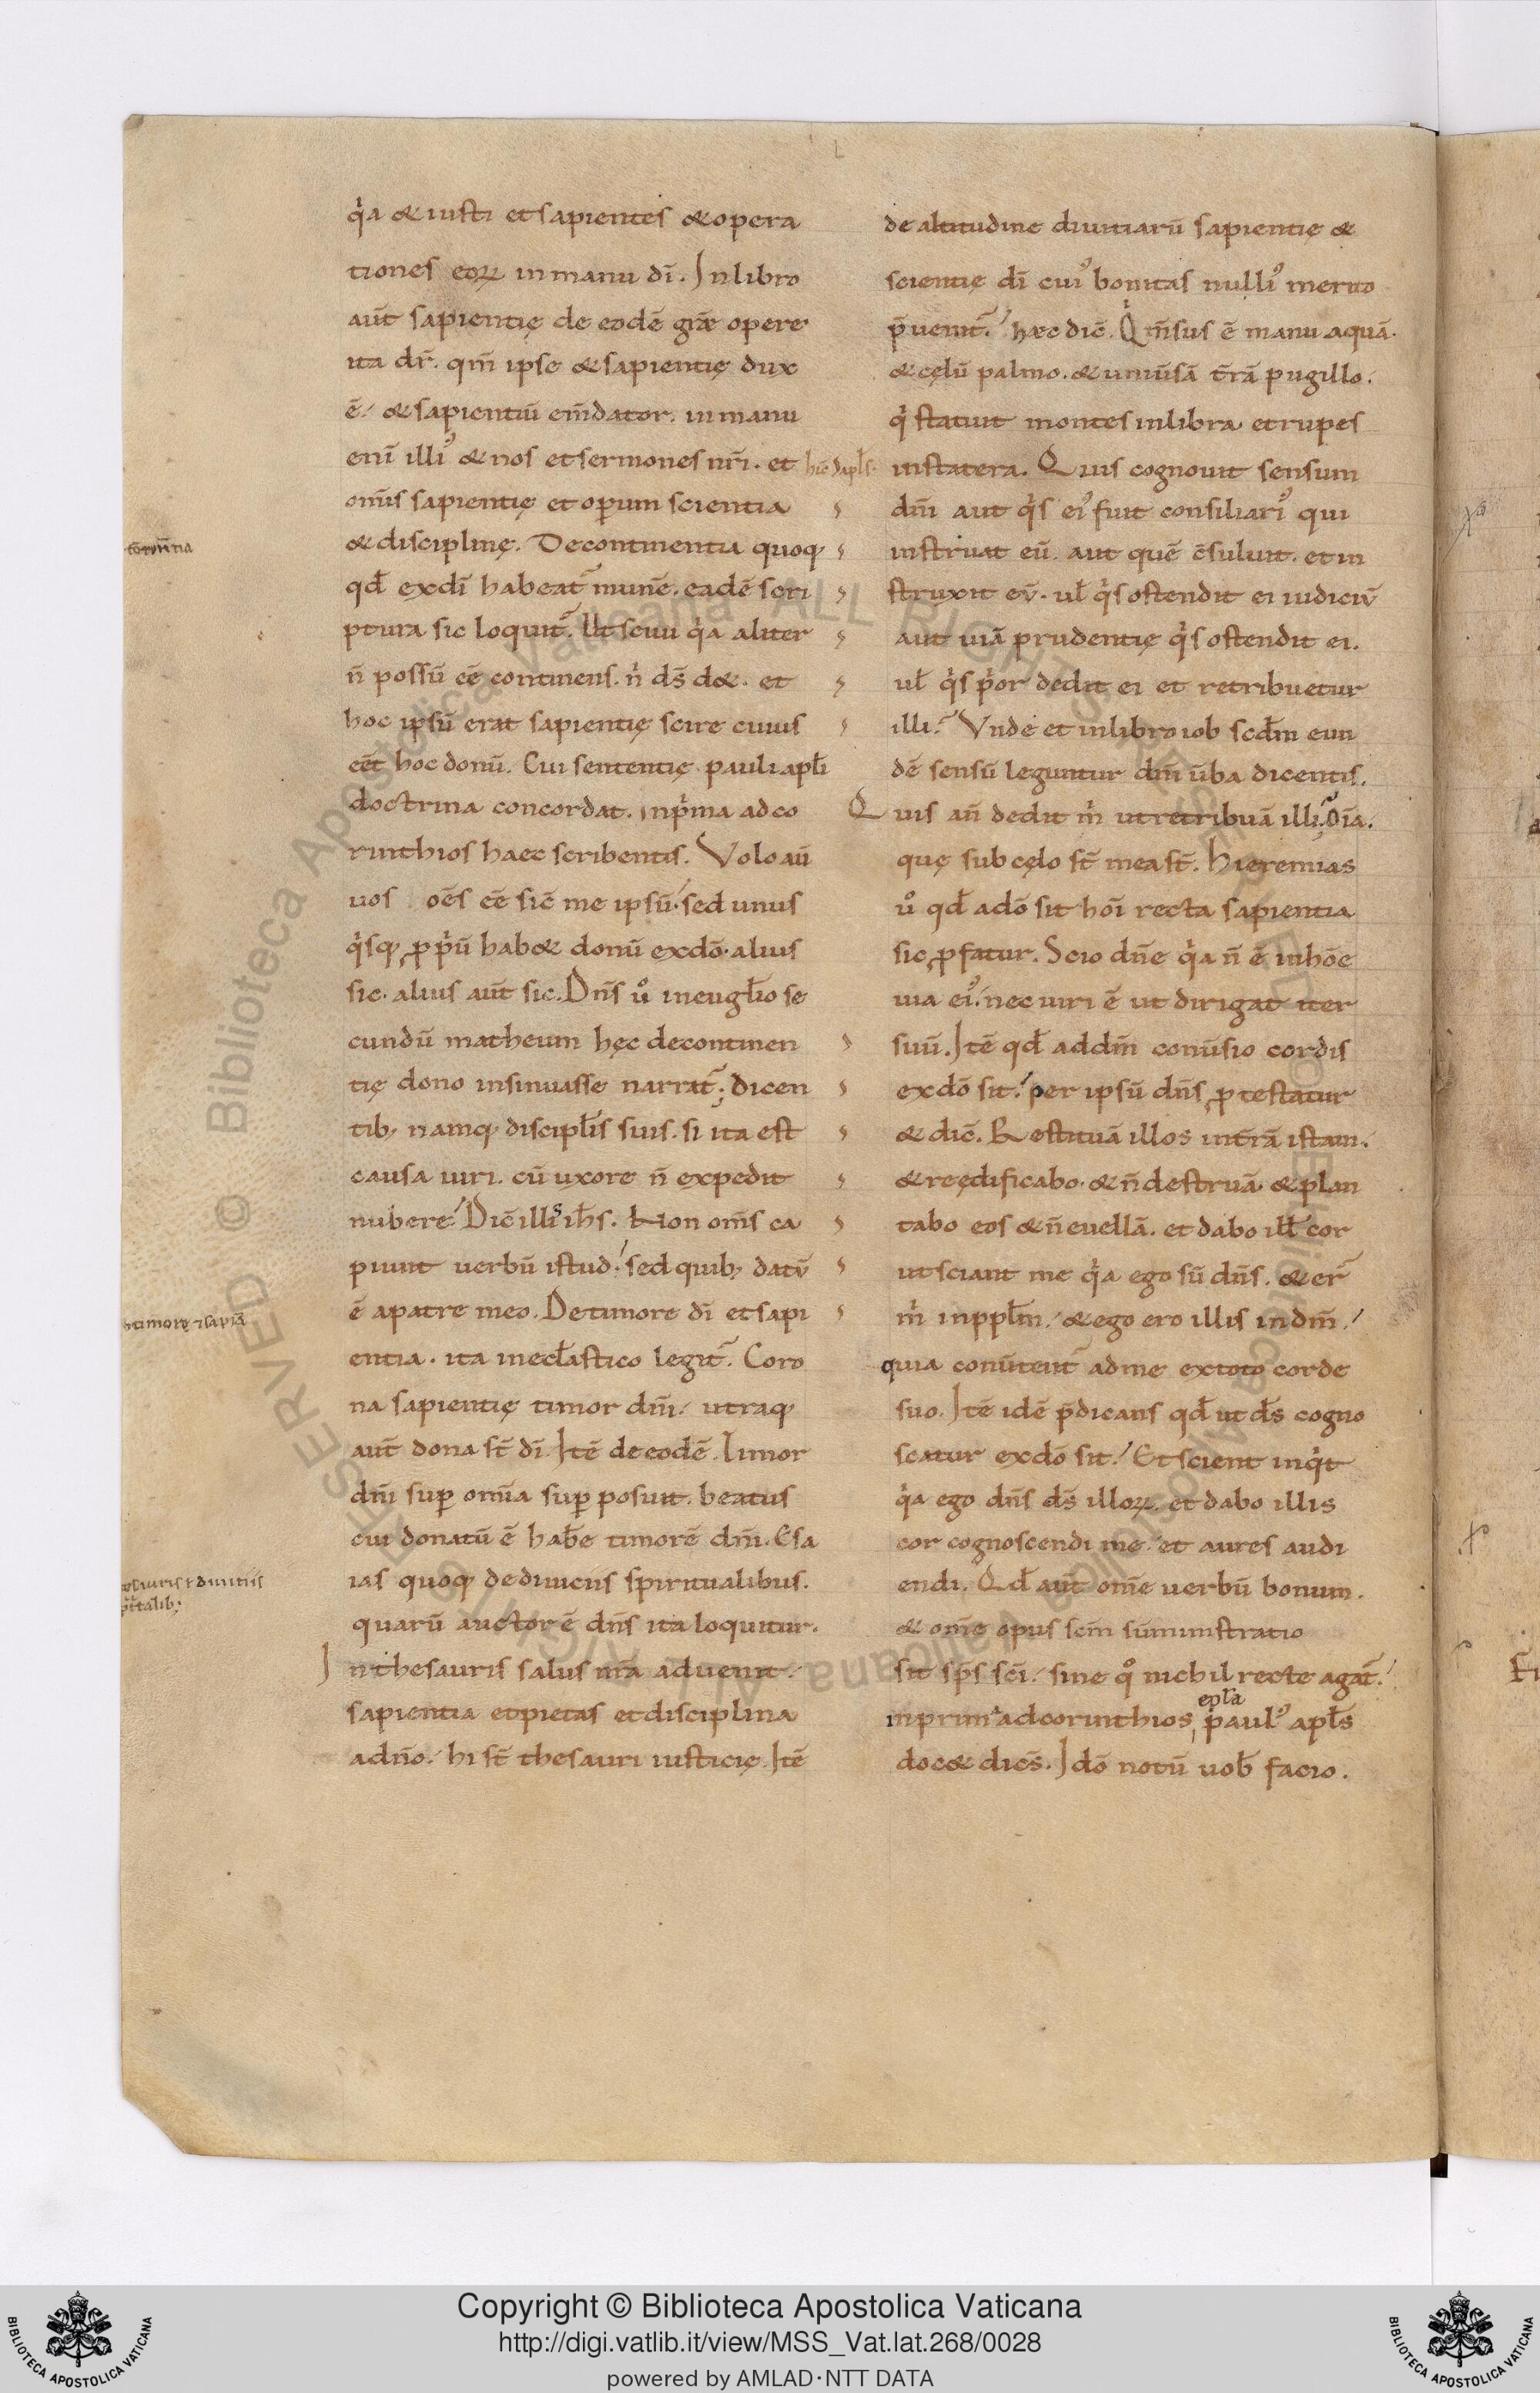 q̇a & iusti et sapientes & opera
tiones eoꝝ in manu dī. In libro
aūt sapientię de eodē grāe opere
ita dr̄. qm̄ ipse & sapientię dux
ē. & sapientiū em̄dator. in manu
enī illi᾽ & nos et sermones nr̄i. et
om̄is sapientię et operum scientia
& disciplinę. De continentia quoq;
qđ ex dī habeat᷑ munē. eadē scri
ptura sic loquit᷑. Ut scivi q̇a aliter
n̄ possū eē continens. n̄ ds̄ d&. et
hoc ipsū erat sapientię scire cuius
eēt hoc donū. Cui sententię pauli apłi
doctrina concordat. in p̍ma ad co
rinthios haec scribentis. Volo aū
uos oēs eē sic̄ me ipsū. sed unus
q̇sq; ꝓp̍ū hab& donū ex dō. alius
sic. alius aūt sic. Dn̄s u̇ in eugłio se
cundū matheum hęc de continen
tię dono insinuasse narrat᷑; dicen
tib; namq; discipłis suis. si ita est
causa uiri. cū uxore n̄ expedit
nubere. Dic̄ illis ih̄s. Non om̄s ca
piunt uerbū istud. sed quib; datū
ē a patre meo. De timore dī et sapi
entia. ita in ecłastico legit᷑. Coro
na sapientię timor dn̄i. utraq;
aūt dona st̄ dī. Itē de eodē. Timor
dn̄i suꝑ omīa suꝑ posuit. beatus
cui donatū ē hab̄e timorē dn̄i. Esa
ias quoq; de diuiciis spiritualibus.
quarū auctor ē dn̄s ita loquitur.
In thesauris salus nr̄a aduenit.
sapientia et pietas et disciplina
a dn̄o. hi st̄ thesauri iusticię. Itē
de altitudine diuitiarū sapientię &
scientię dī cui᾽ bonitas nulli᾽ merito
p̄uenit᷑. hęc dic̄. Q̇ m̄sus ē manu aquā.
& cęlū palmo. & uniūsā t̄rā pugillo.
q̇ statuit montes in libra et rupes
in statera. Quis cognouit sensum
dn̄i aut q̇s ei᾽ fuit consiliari᾽ qui
instruat eū. aut quē c̄suluit. et in
struxit eū. uł q̇s ostendit ei iudiciū
aut uiā prudentię q̇s ostendit ei.
uł q̇s p̍or dedit ei et retribuetur
illi. Vnde et in libro iob scđm eun
dē sensū leguntur dn̄i ūba dicentis.
Quis aū dedit m̍ ut retribuā illi; Oīa.
quę sub cęlo st̄ mea st̄. Hieremias
u̇ qđ a dō sit hoī recta sapientia
sic ꝓfatur. Scio dn̄e q̇a n̄ ē in hōe
uia ei᾽. nec uiri ē ut dirigat iter
suū. Itē qđ ad dn̄m conūsio cordis
ex dō sit. per ipsū dn̄s ꝓtestatur
& dic̄. Restituā illos in t̄rā istam.
& reędificabo. & n̄ destruā & plan
tabo eos & n̄ euellā. et dabo iłł cor
ut sciant me q̇a ego sū dn̄s. & er᷑
m̍ in ppłm. & ego ero illis in dm̄.
quia conūtent᷑ ad me ex toto corde
suo. Itē idē p̄dicans qđ ut ds̄ cogno
scatur ex dō sit. Et scient inq̇t
q̇a ego dn̄s ds̄ illoꝝ. et dabo illis
cor cognoscendi me. et aures audi
endi. Qđ aūt om̄e uerbū bonum.
& om̄e opus scm̄ sūministratio
sit sp̄s sc̄i. sine q̊ nichil recte agat᷑.
epła
in prima ad corinthios, paul᾽ apłs
doc& dicēs. Idō notū uob̄ facio.
Copyright © Biblioteca Apostolica Vaticana
http://digi.vatlib.it/view/MSS_Vat.lat.268/0028
powered by AMLAD·NTT DATA
BIBLIOTECA APOSTOLICA VATICANA
BIBLIOTECA APOSTOLICA VATICANA